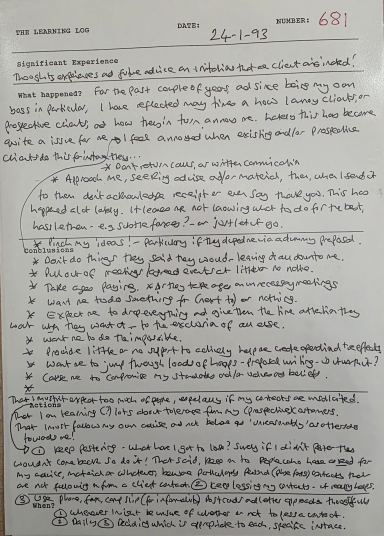 THE LEARNING LOG DATE: 24-1-93 NUMBER: 681
Significant Experience
Thoughts experiences and future advice on irritations that are client originated!
What happened? For the past couple of years, and since being my own
boss in particular, I have reflected many times on how I annoy clients, or
prospective clients, and how they in turn annoy me. Lately this has become
quite a issue for me. I feel annoyed when existing and/or prospective
clients do this for instance they...
* Don't return calls, or written communication
* Approach me, seeking advice and/or material, then, when I send it
to them don't acknowledge receipt or even say thank you. This has
happened a lot lately. It leaves me not knowing what to do for the best,
hassle them - e.g. subtle faxes? - or just let it go.
* Pinch my ideas! - Particularly if they do me via a dummy proposal.
Conclusions
* Don't do things they said they would - leaving it all down to me.
* Pull out of meetings/agreed events at little or no notice.
* Take ages paying, or they take ages on unnecessary meetings
* Want me to do something for (next to) or nothing.
* Expect me to drop everything and give them the time attention they
want when they want it - to the exclusion of all else.
* Want me to do the impossible.
* Provide little or no support to actively help me create operational effects
* Want me to jump through loads of hoops - proposal writing - is it worth it?
* Cause me to compromise my standards and/or values and beliefs.
*
That I mustn't expect too much of people, especially if my contacts are unsolicited.
Actions
That I am learning (?) lots about tolerance from my (prospective) customers.
That I must follow my own advice, and not behave as 'unreasonably' as others do
towards me!
① Keep pestering - What have I got to lose? Surely if I didn't pester they
wouldn't come back. So do it! That said, keep on to people who have asked for
my advice, material or whatever, because particularly personal (phone/fax) contacts that
are not following on from a client contact. ② Keep logging my contacts - it really helps.
③ Use phone, fax, comp slip (for informality) Postcards and letter approaches thoughtfully
When?
① Whenever I might be unsure of whether or not to pass a contact.
② Daily ③ Deciding which is appropriate to each, specific instance.